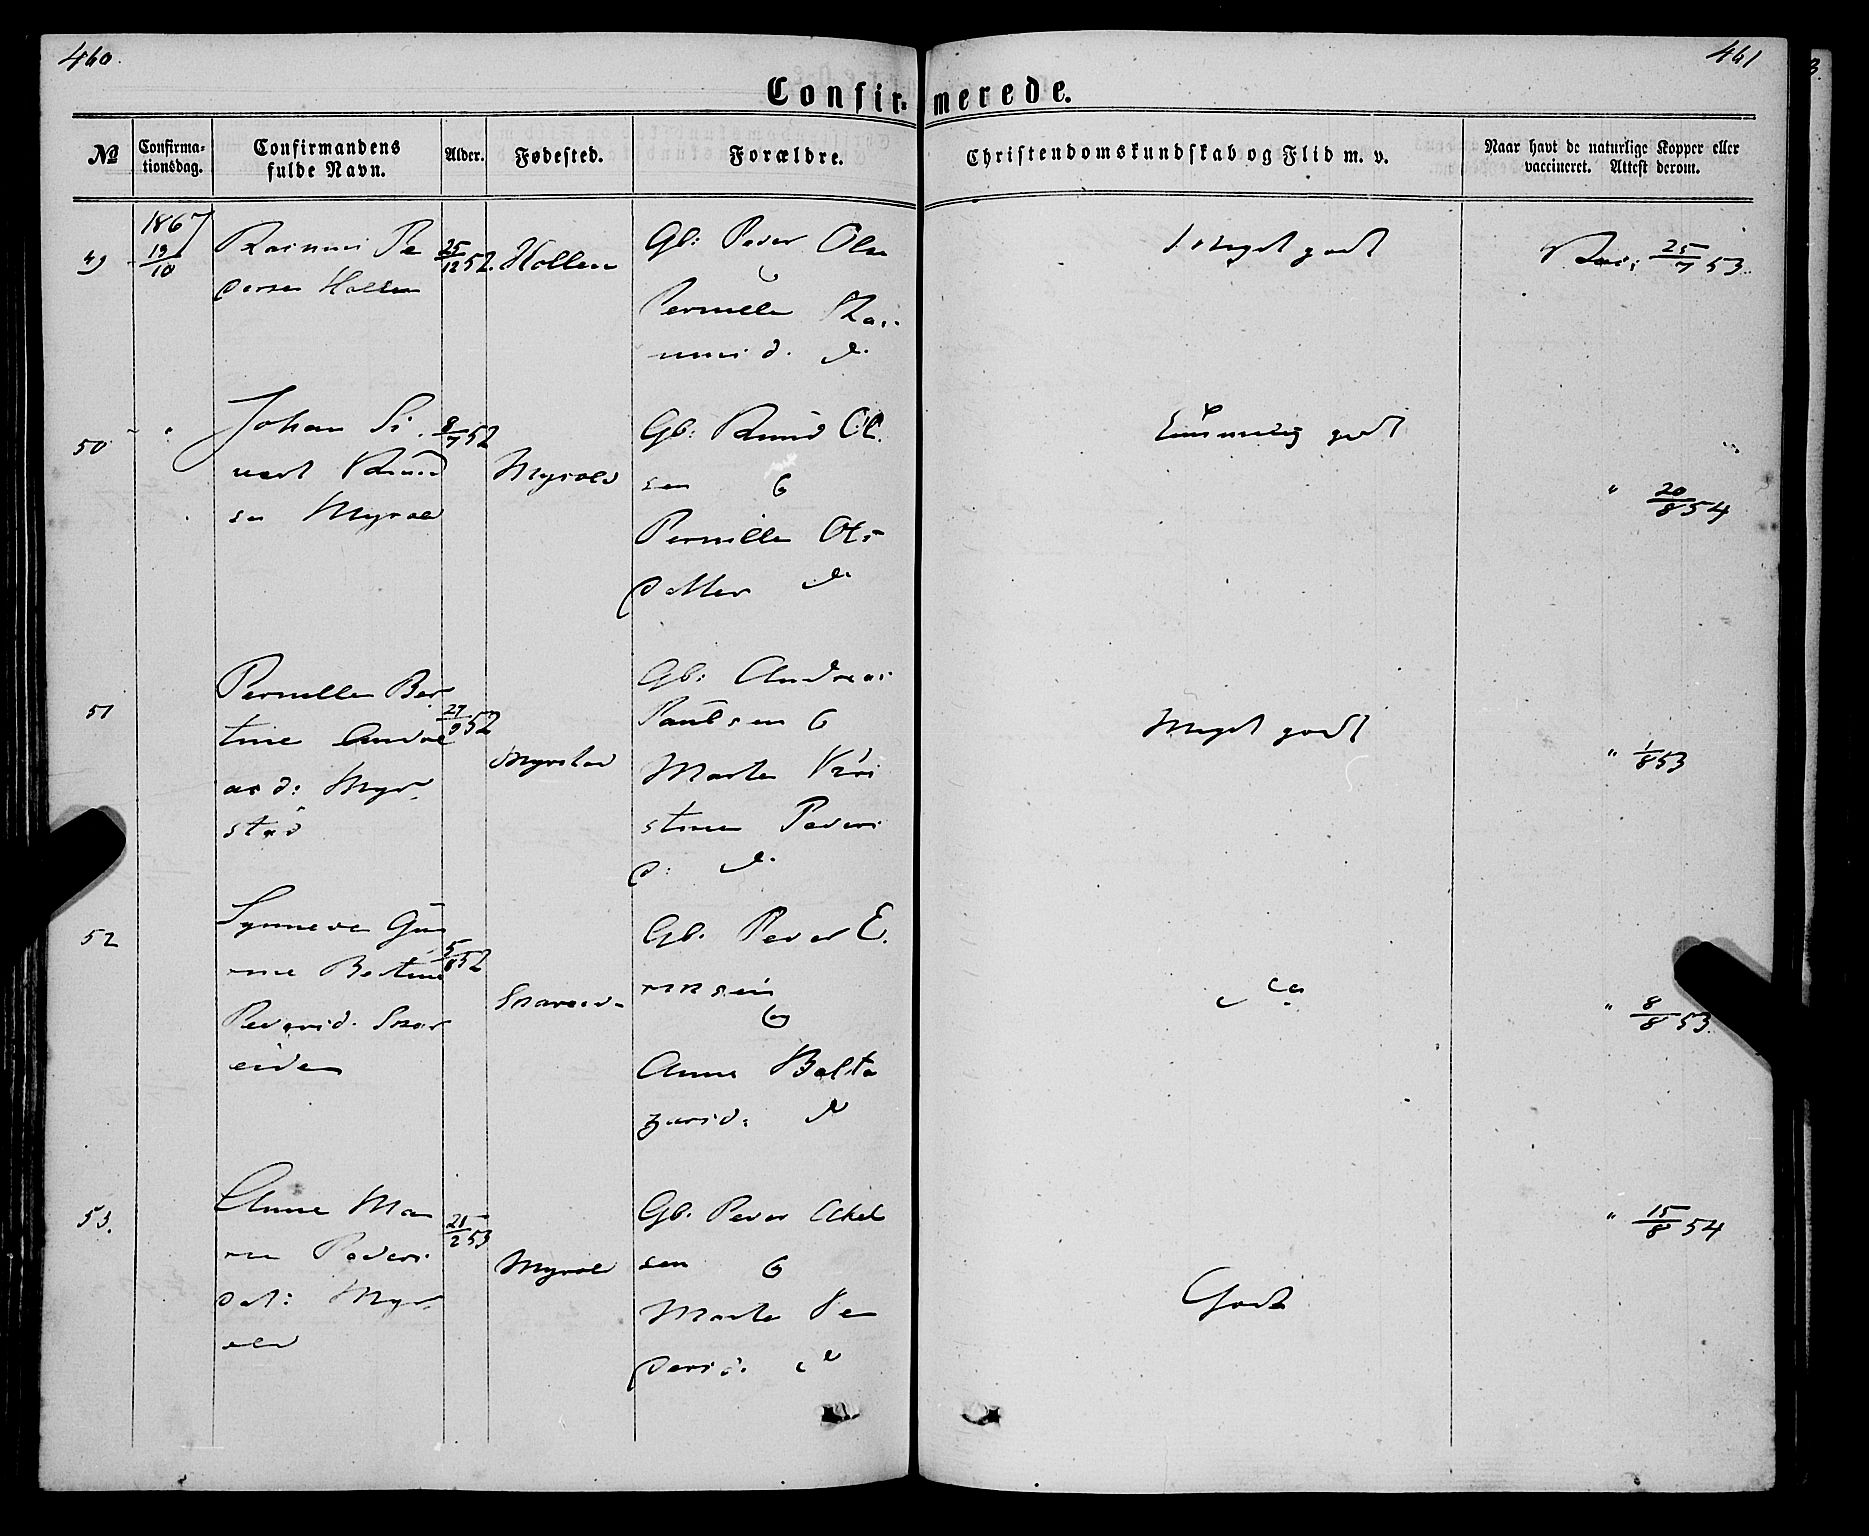 460.
461
Confir- merede.
№
Confirma-
tionsdag.
Confirmandens
fulde Navn.
Alder.
Fødested.
Forældre.
Christendomskundskab og Flid m. v.
Naar havt de naturlige Kopper eller
vaccineret. Attest derom.
49
1867
19/10
Rasmus Pe
dersen Hollen
25/12 52.
Hollen
Gb: Peder Olsen
Pernille Ras
musd. d.
Meget godt
Vac: 25/7 53.
50
"
Johan Si
vert Knud
sen Myrold
8/7 52
Myrold
Gb: Knud Ol
sen G
Pernille Ols
datter d.
Temmelig godt
" 20/8 54
51
Pernille Ber
tine Andre
asd: Myr
stad
27/9 52
Myrstad
Gb: Andreas
Paulsen G
Marte Kri
stine Peders
d: d.
Meget godt
" 1/8 53
52
Synneve Gu
rine Bertine
Pedersd. Snar
eiden
5/8 52
Gb. Peder E.
Anne Balta
zarsd: d
" 8/8 53.
53.
Anne Ma
rie Peders
dat: Myr
old
21/2 53
Myrold
Gb. Peder Aksel
sen G
Marte Pe
dersd. d
Godt
" 15/8 54